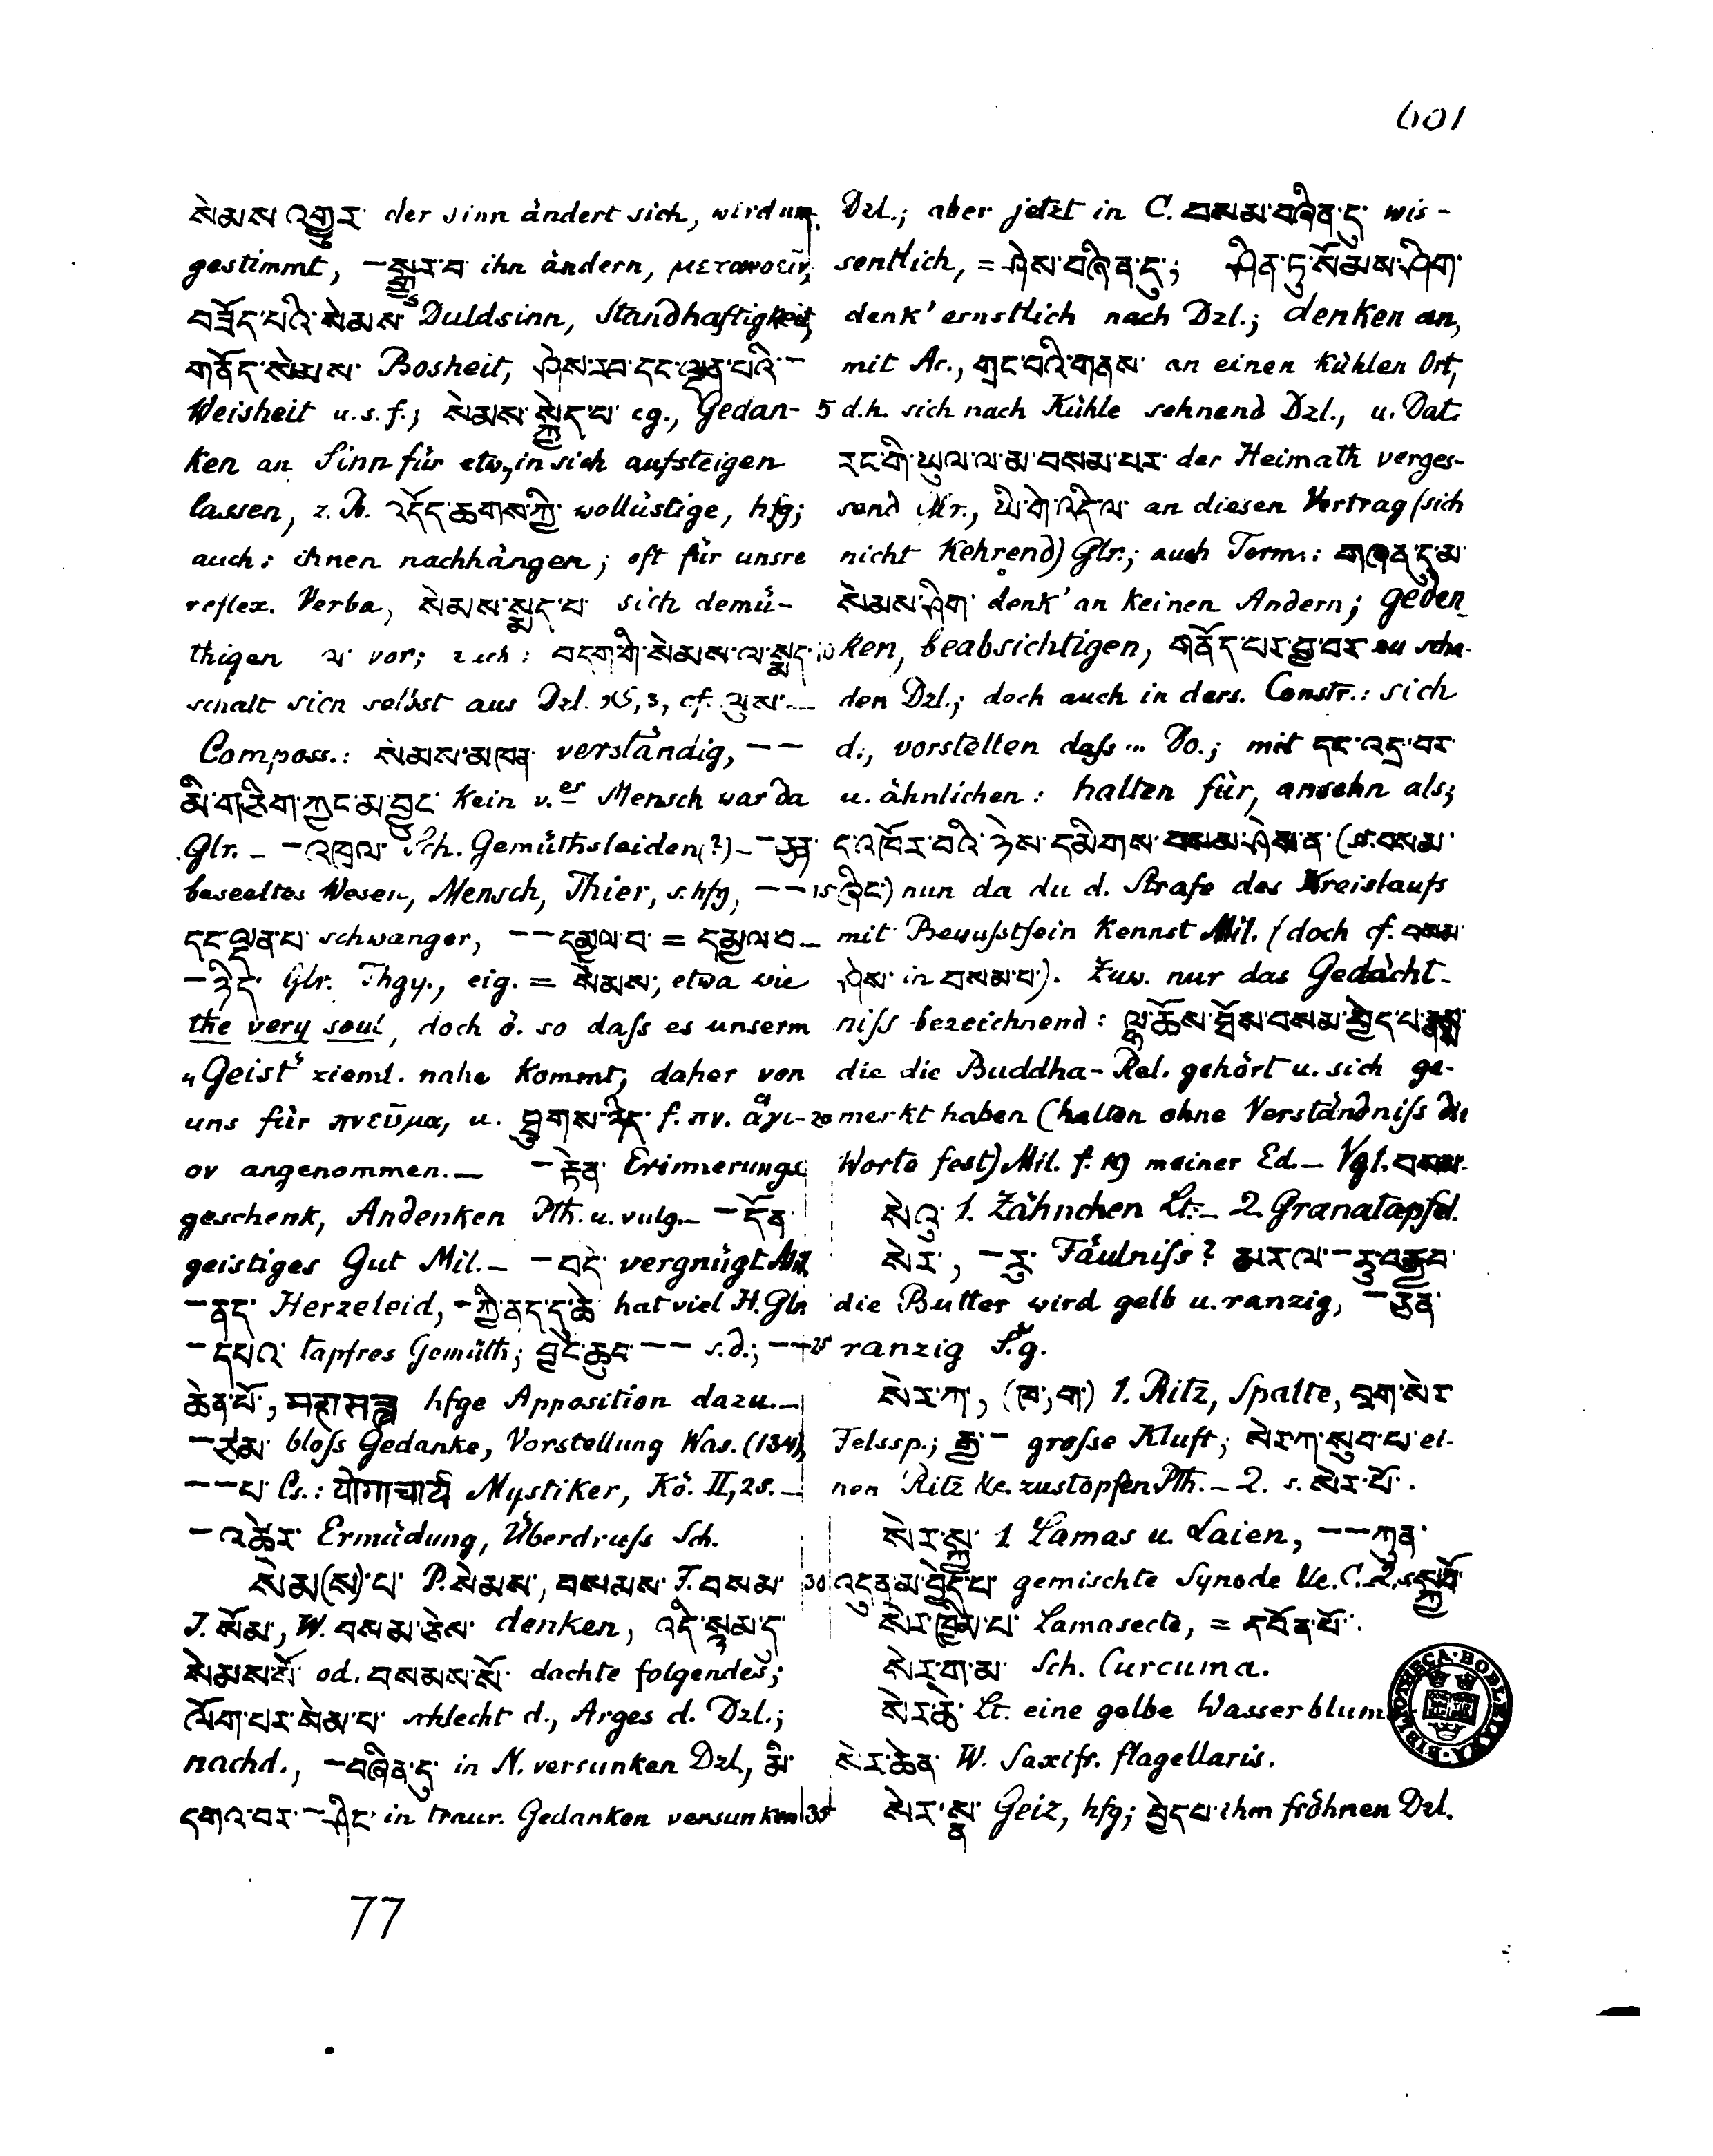 601
སེམས་འགྱུར་ der Sinn ändert sich, wird um
gestimmt, – སྒྱུར་བ་ ihn ändern, μετανοεῖν,
བཟོད་པའི་སེམས་ Duldsinn, Standhaftigkeit,
གནོད་སེམས་ Bosheit, ཤེས་རབ་དང་ལྡན་པའི་ –
Weisheit u.s.f.; སེམས་སྐྱེད་པ་ eg., Gedan-
ken an Sinn für etw, in sich aufsteigen
lassen, z.B. འདོད་ཆགས་ཀྱི་ wollüstige, hfg;
auch: ihnen nachhängen; oft für unsre
reflex. Verba, སེམས་སྨད་པ་ sich demü-
thigen ལ་ vor; auch: བདག་གི་སེམས་ལ་སྨད་
schalt sich selbst aus Dzl. cf. ལུས་ –
Composs.: སེམས་མཁན་ verständig, – –
མི་གཅིག་ཀྱང་མ་བྱུང་ kein v.er Mensch war da
Glr. – – འཁྲུལ་ Sch. Gemüthsleiden (?) – – ཅན་
beseeltes Wesen, Mensch, Thier, s. hfg, – –
དང་ལྡན་པ་ schwanger, – – དམྱལ་བ་ = དམྱལ་བ. –
– ཉིད་ Glr. Thgy., eig. = སེམས་, etwa wie
the very soul, doch ö. so daſs es unserm
„Geist" zieml. nahe kommt, daher von
uns für πνεῦμα, u. ཐུགས་ཉིད་ f. πν. ἅγι-
ον angenommen. – – རྟེན་ Erinnerungs
geschenk, Andenken Pth. u. vulg. – – དོན་
geistiges Gut Mil. – – བདེ་ vergnügt Mil.
– ནད་ Herzeleid, – ཀྱི་ནད་ད་ཆེ་ hat viel H. Glr.
– དཔའ་ tapfres Gemüth; བྱང་ཆུབ་ – – s.d.; – –
ཆེན་པོ་, महासत्त्व hfge Apposition dazu. –
– ཙམ་ bloſs Gedanke, Vorstellung Was. (134),
– – པ་ Cs.: योगाचार्य Mystiker, Kö. II, 25. –
– འཚེར་ Ermüdung, Überdruſs Sch.
སེམ(ས)་པ་ P. སེམས་, བསམས་ F. བསམ་
J. སོམ་, W. བསམ་ཅེས་ denken, འདི་སྙམ་དུ་
སེམས་སོ་ od. བསམས་སོ་ dachte folgendes;
ལོག་པར་སེམ་པ་ schlecht d., Arges d. Dzl.;
nachd., – བཞིན་དུ་ in N. versunken Dzl, མི་
དགའ་བར་ – ཤིང་ in traur. Gedanken versunken
Dzl.; aber jetzt in C. བསམ་བཞིན་དུ་ wis-
sentlich, = ཤེས་བཞིན་དུ་; ཤིན་ཏུ་སོམས་ཤིག་
denk' ernstlich nach Dzl.; denken an,
mit Ac., གྲང་བའི་གནས་ an einen kühlen Ort,
5 d.h. sich nach Kühle sehnend Dzl., u. Dat.
རང་གི་ཡུལ་ལ་མ་བསམ་པར་ der Heimath verges-
send Mr., ཡི་གེ་འདི་ལ་ an diesen Vertrag (sich
nicht kehrend) Glr.; auch Term.: གཞན་དུ་མ་
སེམས་ཤིག་ denk' an keinen Andern; geden-
10 ken, beabsichtigen, གནོད་པར་བྱ་བར་ zu scha-
den Dzl.; doch auch in ders. Constr.: sich
d., vorstellen daſs ... Do.; mit དང་འདྲ་བར་
u. ähnlichen: halten für, ansehn als;
ད་འཁོར་བའི་ཉེས་དམིགས་བསམ་ཤེས་ན་ (བསམ་
15 ཞིང་) nun da du d. Strafe des Kreislaufs
mit Bewuſstſein kennst Mil. (doch cf. བསམ་
ཤེས་ in བསམ་པ་). Zuw. nur das Gedächt-
niſs bezeichnend: ལྷ་ཆོས་ཐོས་བསམ་བྱེད་པ་རྣམས་
die die Buddha-Rel. gehört u. sich ge-
20 merkt haben (halten ohne Verständniſs die
Worte fest) Mil. f. 19 meiner Ed. – Vgl. བསམ་
སེའུ་ 1. Zähnchen Lt. – 2. Granatapfel.
སེར་, – རུ་ Fäulniſs? མར་ལ་ – རུ་བརྒྱབ་
die Butter wird gelb u. ranzig, – ཅན་
25 ranzig S.g.
སེར་ཀ་, (ཁ་, ག་) 1. Ritz, Spalte, བྲག་སེར་
Felssp.; རྒྱ་ – groſse Kluft; སེར་ཀ་སུབ་པ་ ei-
nen Ritz zustopfen Pth. – 2. s. སེར་པོ་.
སེར་སྐྱ་ 1 Lamas u. Laien, – – ཀུན་
30 འདུན་མ་བྱེད་པ་ gemischte Synode
སེར་ཁྱིམ་པ་ Lamasecte, = དབོན་པོ་.
སེར་ག་མ་ Sch. Curcuma.
སེར་ཆེ་ Lt. eine gelbe Wasserblum
སེར་ཆེན་ W. Saxifr. flagellaris.
35 སེར་སྣ་ Geiz, hfg; བྱེད་པ་ ihm fröhnen Dzl.
BIBLIOTHECA · BODLEIANA
77